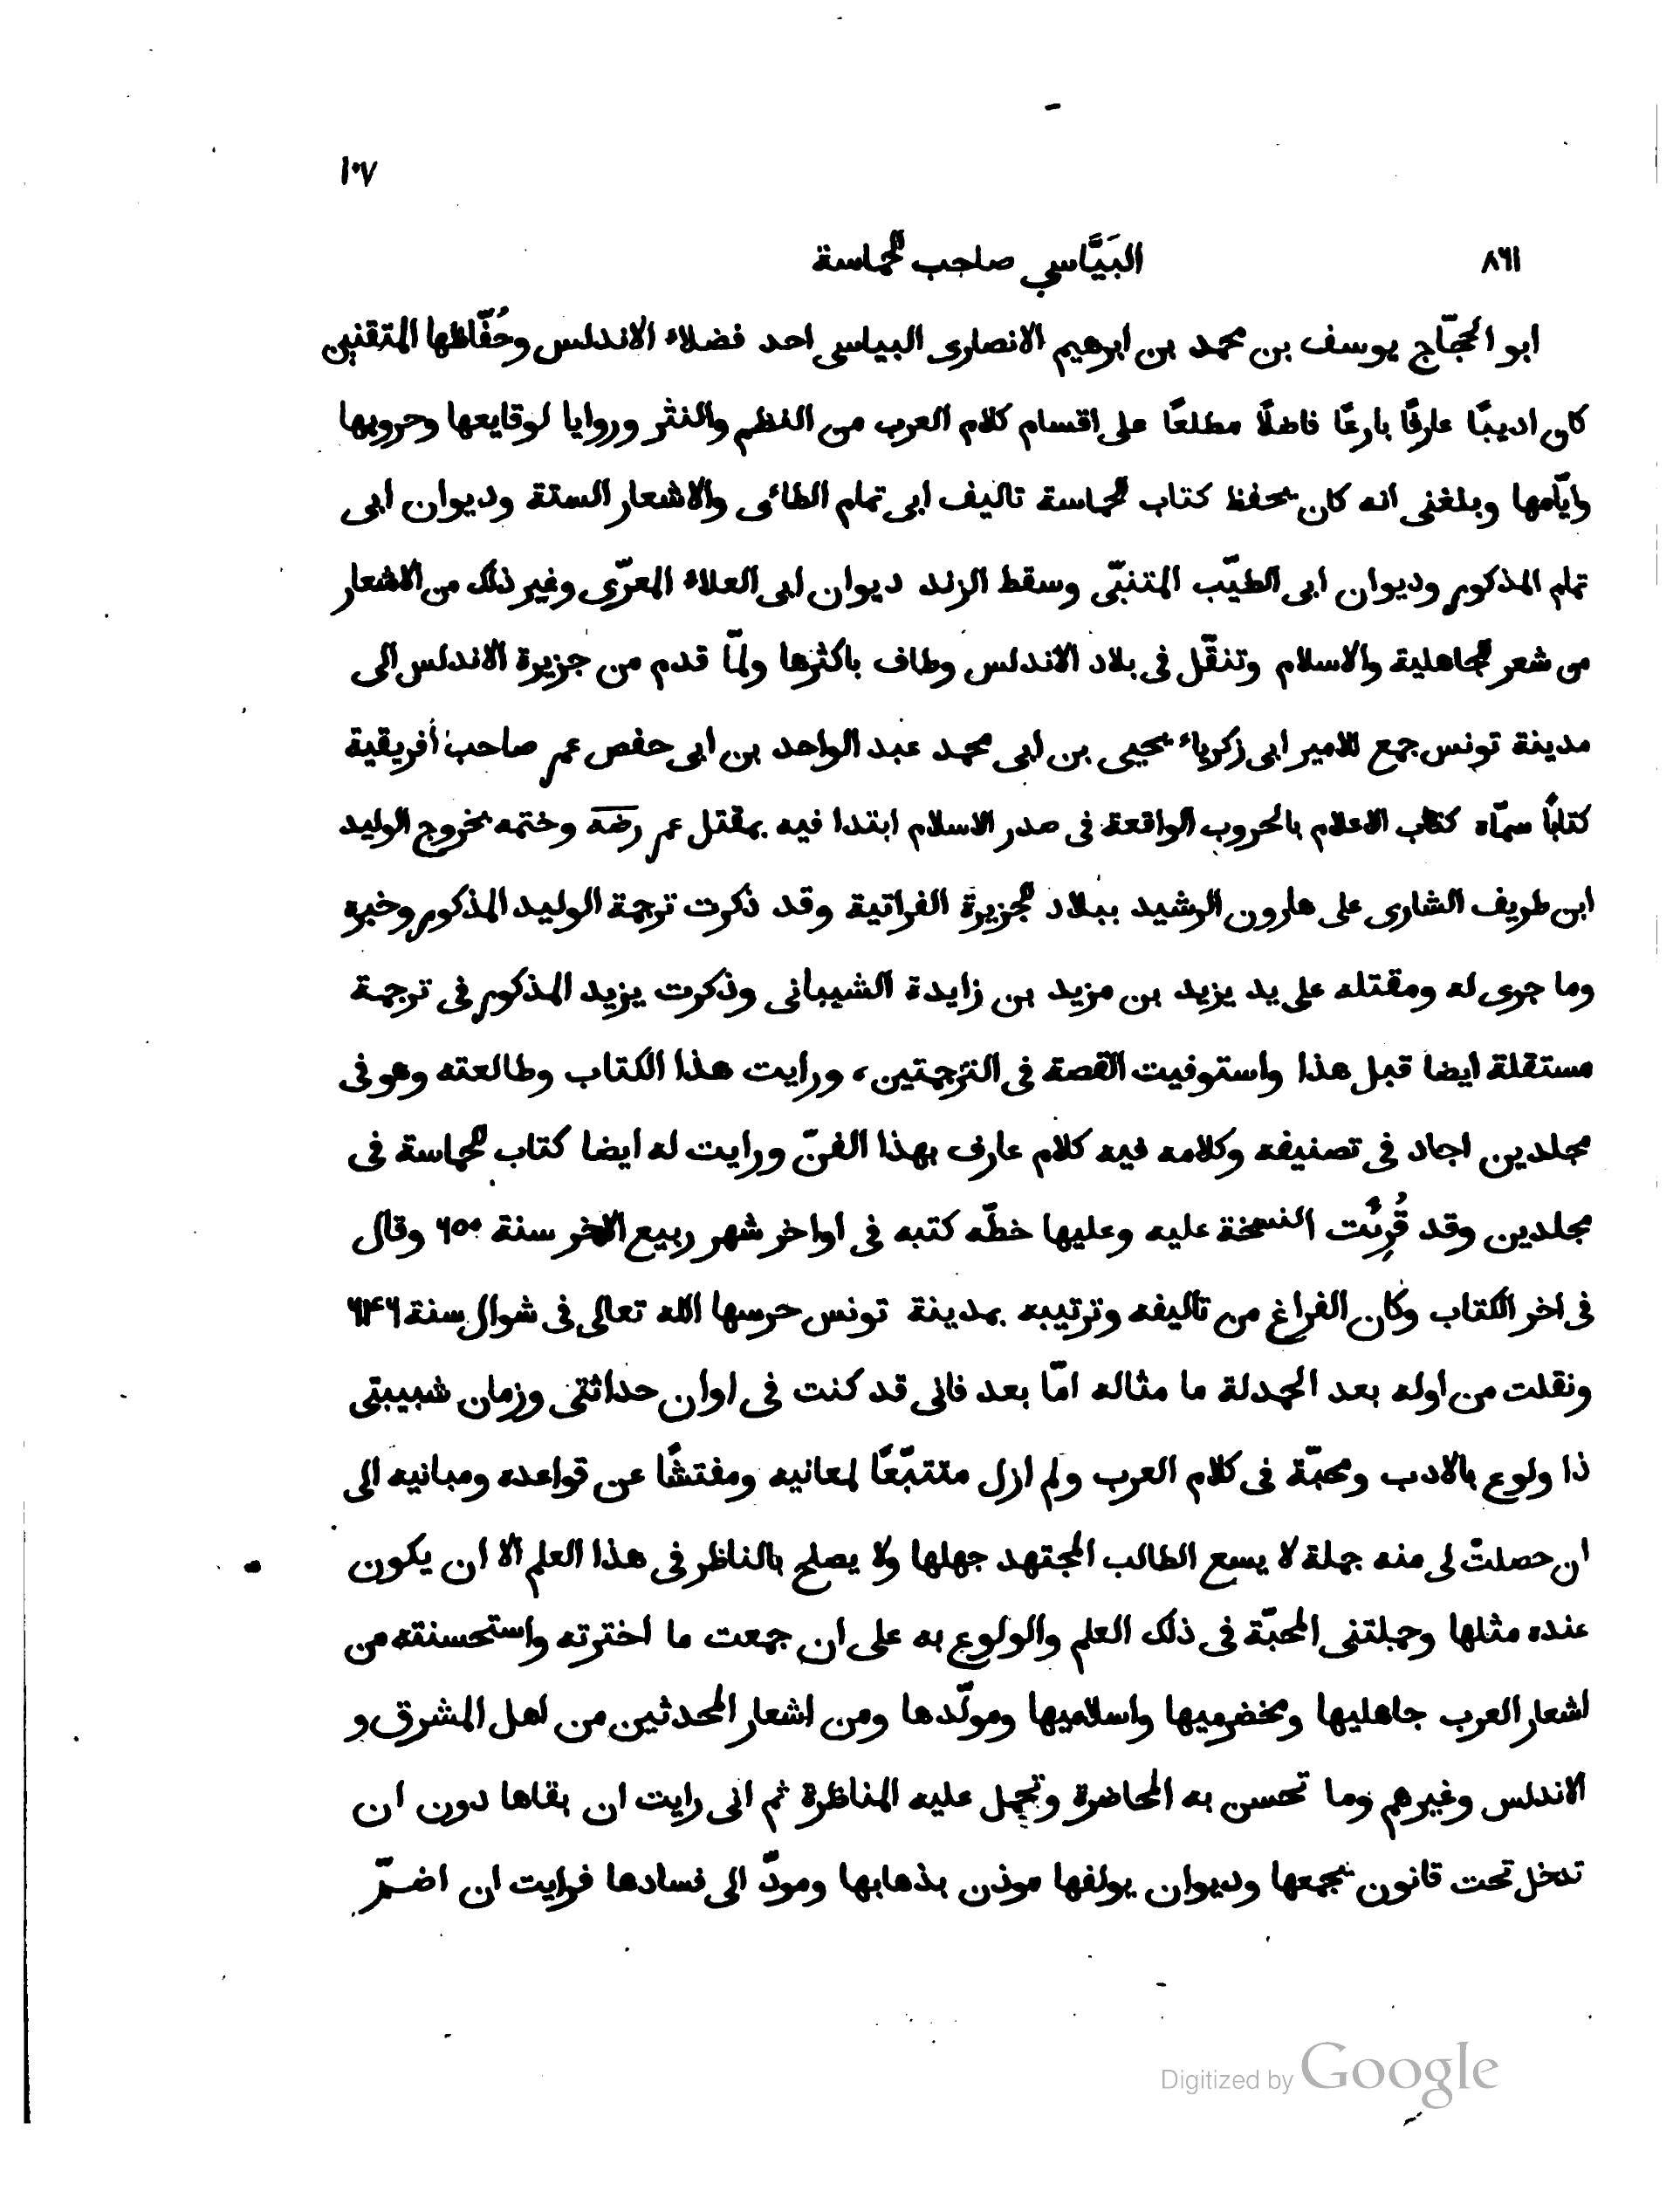 ١٠٧
٨٦١ البَيَّاسي صاحب الحماسة
ابو الحجّاج يوسف بن محمد بن ابرهيم الانصارى البياسى احد فضلاء الاندلس وحُفّاظها المتقنين
كان اديبًا عارفًا بارعًا فاضلًا مطلعًا على اقسام كلام العرب من النظم والنثر وروايا لوقايعها وحروبها
وايّامها وبلغنى انه كان يحفظ كتاب الحماسة تاليف ابى تمام الطائى والاشعار الستة وديوان ابى
تمام المذكور وديوان ابى الطيّب المتنبّى وسقط الزند ديوان ابى العلاء المعرّى وغير ذلك من الاشعار
من شعر الجاهلية والاسلام وتنقّل فى بلاد الاندلس وطاف باكثرها ولمّا قدم من جزيرة الاندلس الى
مدينة تونس جمع للامير ابى زكرياء يحيى بن ابى محمد عبد الواحد بن ابى حفص عمر صاحب أفريقية
كتابًا سمّاه كتاب الاعلام بالحروب الواقعة فى صدر الاسلام ابتدا فيه بمقتل عمر رضه وختمه بخروج الوليد
ابن طريف الشارى على هارون الرشيد ببلاد الجزيرة الفراتية وقد ذكرت ترجمة الوليد المذكور وخبره
وما جرى له ومقتله على يد يزيد بن مزيد بن زايدة الشيبانى وذكرت يزيد المذكور فى ترجمة
مستقلة ايضا قبل هذا واستوفيت القصة فى الترجمتين، ورايت هذا الكتاب وطالعته وهو فى
مجلدين اجاد فى تصنيفه وكلامه فيه كلام عارف بهذا الفنّ ورايت له ايضا كتاب الحماسة فى
مجلدين وقد قُرِئت النسخة عليه وعليها خطّه كتبه فى اواخر شهر ربيع الاخر سنة ٦٥٠ وقال
فى اخر الكتاب وكان الفراغ من تاليفه وترتيبه بمدينة تونس حرسها الله تعالى فى شوال سنة ٦٤٦
ونقلت من اوله بعد الحمدلة ما مثاله امّا بعد فانى قد كنت فى اوان حداثتى وزمان شبيبتى
ذا ولوع بالادب ومحبّة فى كلام العرب ولم ازل متتبّعًا لمعانيه ومفتشًا عن قواعده ومبانيه الى
ان حصلتْ لى منه جملة لا يسع الطالب المجتهد جهلها ولا يصلح بالناظر فى هذا العلم الا ان يكون
عنده مثلها وحملتنى المحبّة فى ذلك العلم والولوع به على ان جمعت ما اخترته واستحسنته من
اشعار العرب جاهليها ومخضرميها واسلاميها ومولّدها ومن اشعار المحدثين من اهل المشرق و
الاندلس وغيرهم وما تحسن به المحاضرة وتجمل عليه المناظرة ثم انى رايت ان بقاها دون ان
تدخل تحت قانون يجمعها وديوان يولفها موذن بذهابها ومودّ الى فسادها فرايت ان اضمّ
Digitized by Google